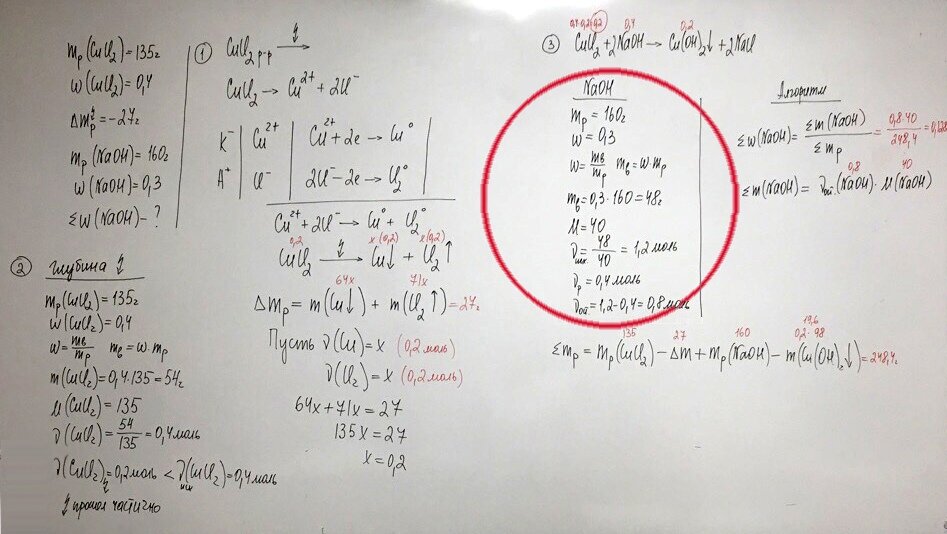 mр(CuCl₂)=135г
w(CuCl₂)=0,4
Δmр↯=-27г
mр(NaOH)=160г
w(NaOH)=0,3
Σw(NaOH)-?
① CuCl₂ р-р ↯→
CuCl₂ → Cu²⁺ + 2Cl⁻
K⁻ | Cu²⁺ | Cu²⁺+2e → Cu⁰
A⁺ | Cl⁻ | 2Cl⁻-2e → Cl₂⁰
Cu²⁺+2Cl⁻ → Cu⁰ + Cl₂⁰
0,2 x(0,2) x(0,2)
CuCl₂ ↯→ Cu↓ + Cl₂↑
64x 71x
Δmр = m(Cu↓) + m(Cl₂↑)=27г
Пусть ν(Cu)=x (0,2моль)
ν(Cl₂)=x (0,2моль)
64x+71x=27
135x=27
x=0,2
② Глубина ↯
mр(CuCl₂)=135г
w(CuCl₂)=0,4
w=mв/mр mв=w·mр
m(CuCl₂)=0,4·135=54г
M(CuCl₂)=135
ν(CuCl₂)=54/135=0,4моль
ν(CuCl₂)↯=0,2моль < νисх(CuCl₂)=0,4моль
↯ прошел частично
0,4-0,2=0,2 0,4 0,2
③ CuCl₂+2NaOH → Cu(OH)₂↓+2NaCl
NaOH
mр=160г
w=0,3
w=mв/mр mв=w·mр
mв=0,3·160=48г
M=40
νисх=48/40=1,2моль
νр=0,4моль
νост=1,2-0,4=0,8моль
Алгоритм
Σw(NaOH)=Σm(NaOH)/Σmр=0,8·40/248,4=0,128
0,8 40
Σm(NaOH)=νост(NaOH)·M(NaOH)
19,6
135 27 160 0,2·98
Σmр=mр(CuCl₂)-Δm+mр(NaOH)-m(Cu(OH)₂↓)=248,4г